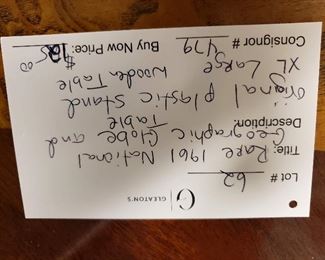 G
GLEATON'S
Lot # 62
Title: Rare 1961 National
Geographic Globe and
Description: Table
Original plastic stand
XL Large Wooden Table
Consignor # 479
Buy Now Price: